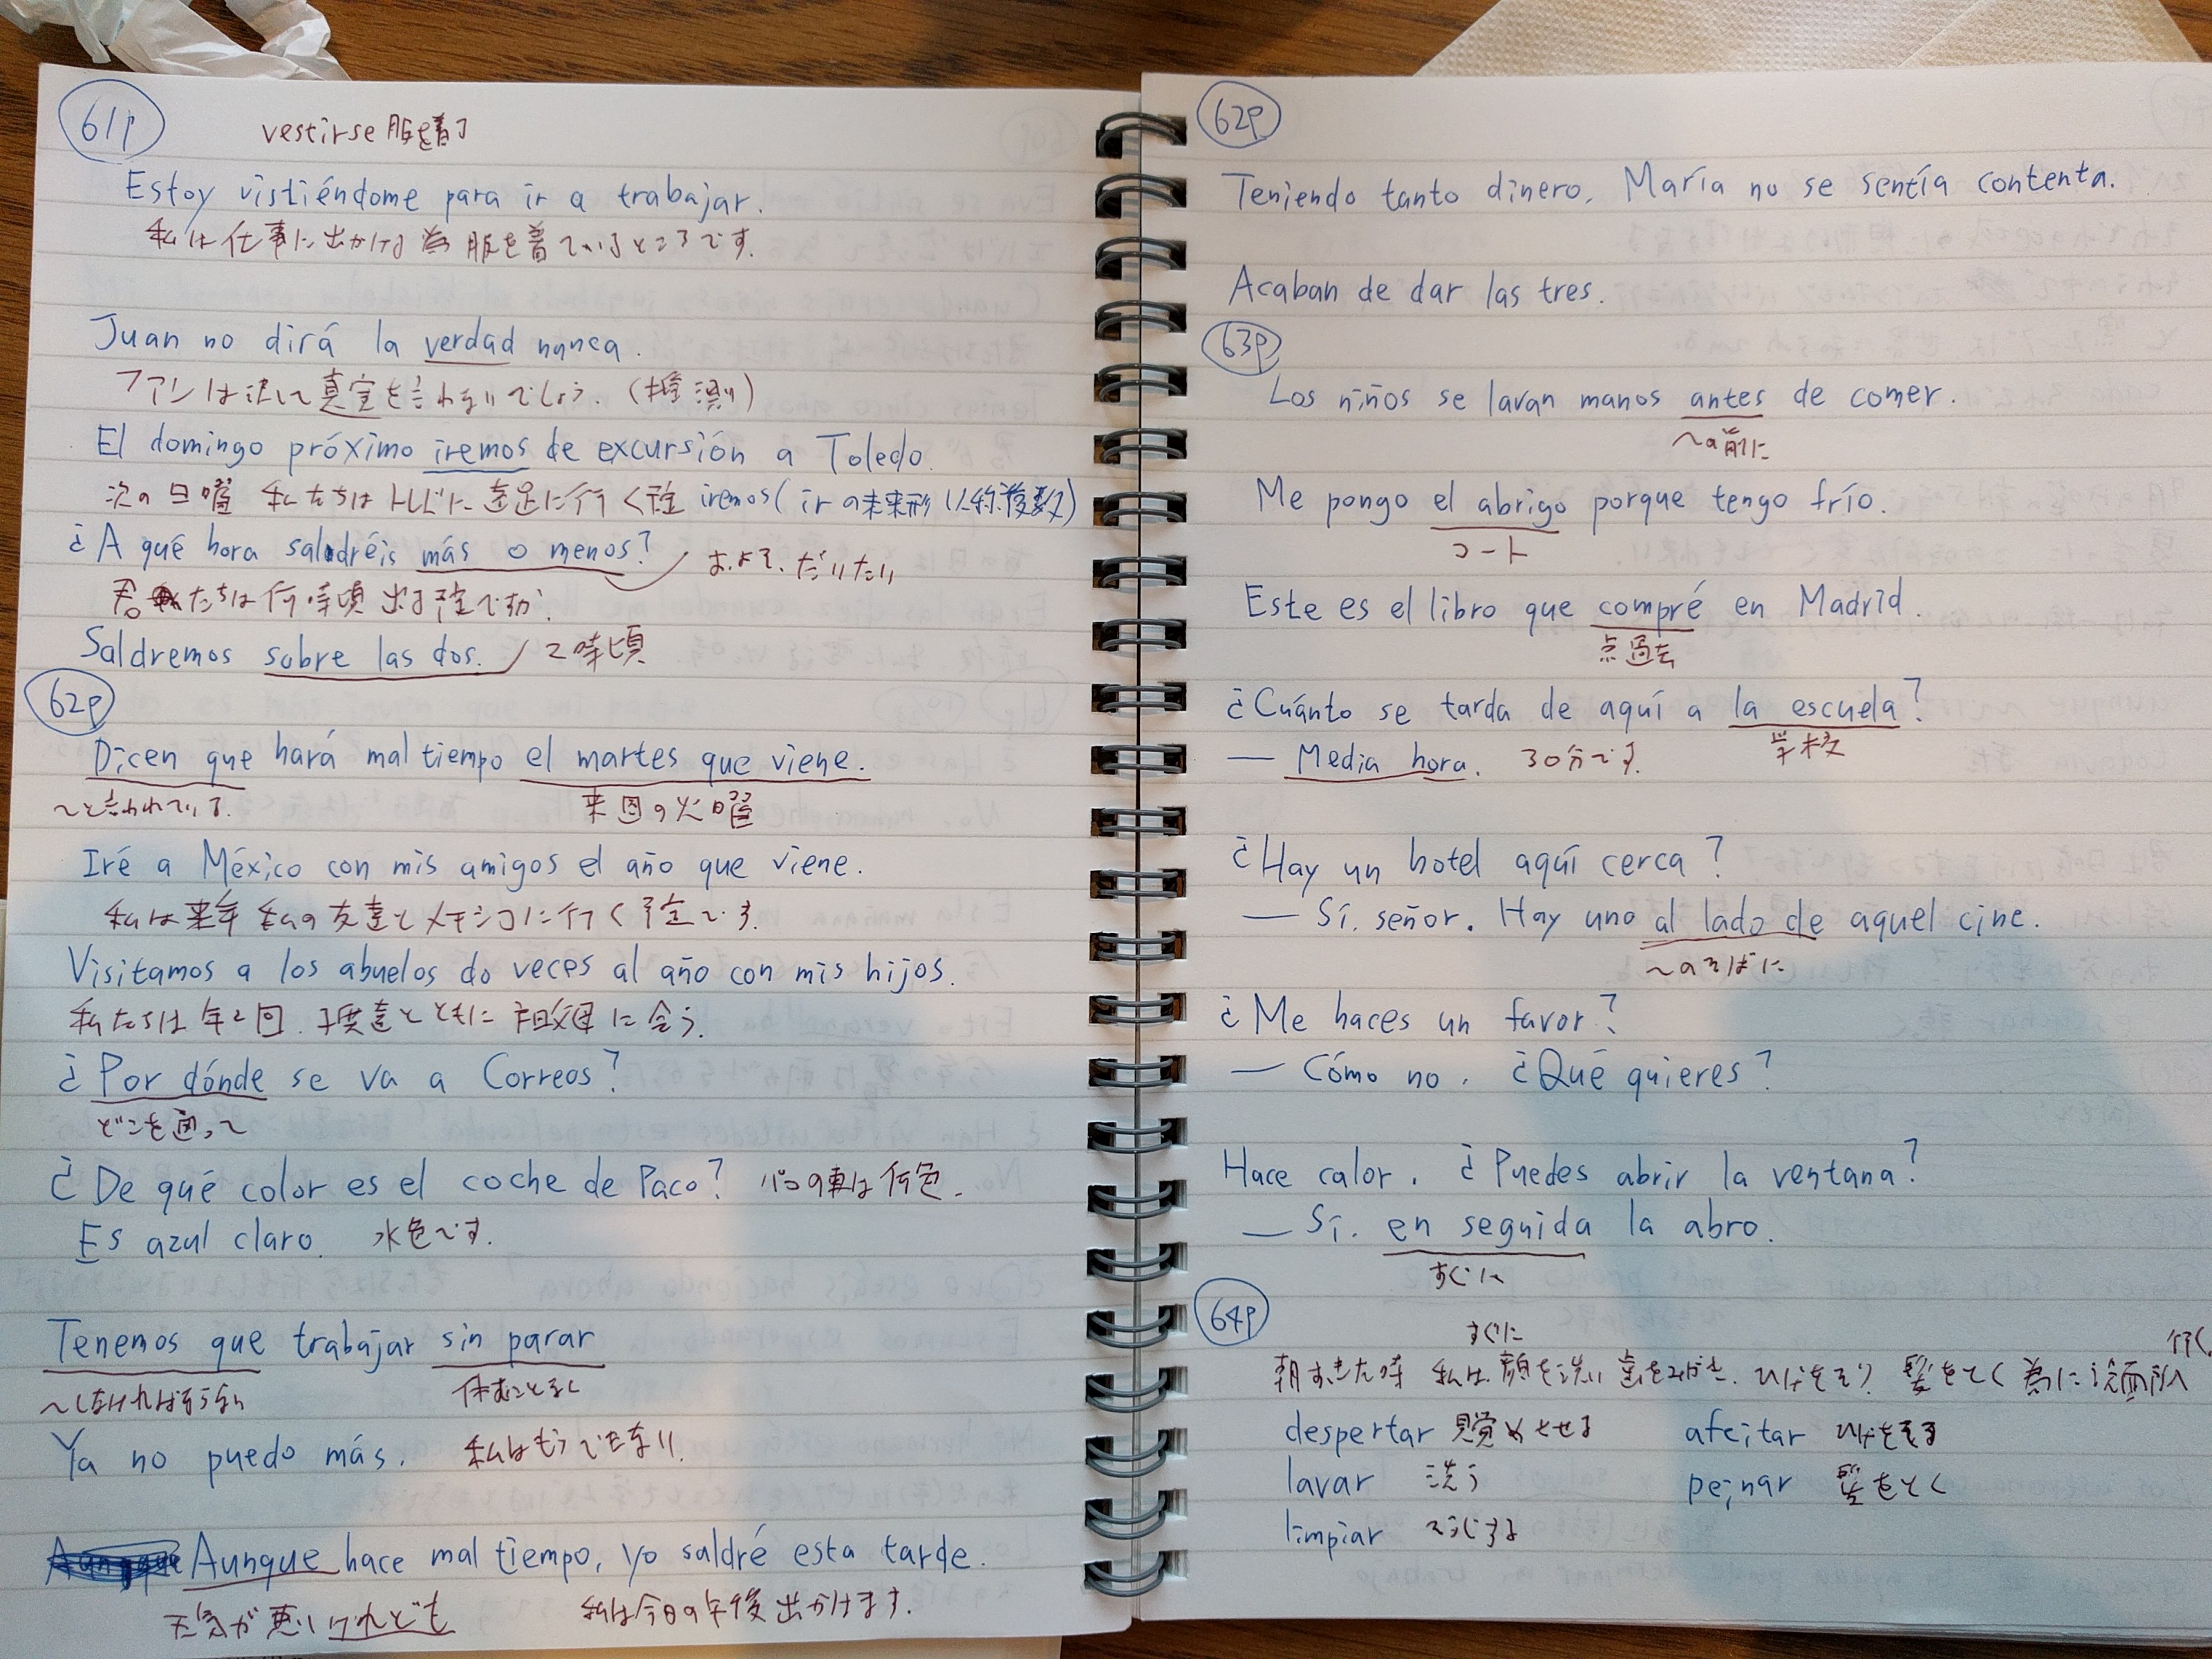 61p
vestirse 服を着る
Estoy vistiéndome para ir a trabajar.
私は仕事に出かける為服を着ているところです。
Juan no dirá la verdad nunca.
ファンは決して真実を言わないでしょう。(推測)
El domingo próximo iremos de excursión a Toledo.
次の日曜 私たちはトレドに遠足に行く iremos(irの未来形1人称複数)
¿A qué hora saldréis más o menos? およそ、だいたい
君たちは何時頃出る予定ですか?
Saldremos sobre las dos. 2時頃
62p
Dicen que hará mal tiempo el martes que viene.
〜と言われている. 来週の火曜
Iré a México con mis amigos el año que viene.
私は来年 私の友達とメキシコに行く予定です.
Visitamos a los abuelos do veces al año con mis hijos.
私たちは年2回. 子供達とともに 祖父母に会う.
¿Por dónde se va a Correos?
どこを通って
¿De qué color es el coche de Paco? パコの車は何色.
Es azul claro. 水色です.
Tenemos que trabajar sin parar
〜しなければならない 休むことなく
Ya no puedo más. 私はもうできない.
Aunque hace mal tiempo, yo saldré esta tarde.
天気が悪いけれども 私は今日の午後出かけます.
62p
Teniendo tanto dinero, María no se sentía contenta.
Acaban de dar las tres.
63p
Los niños se lavan manos antes de comer.
〜の前に
Me pongo el abrigo porque tengo frío.
コート
Este es el libro que compré en Madrid.
点過去
¿Cuánto se tarda de aquí a la escuela?
学校
— Media hora. 30分です.
¿Hay un hotel aquí cerca?
— Sí, señor. Hay uno al lado de aquel cine.
〜のそばに
¿Me haces un favor?
— Cómo no. ¿Qué quieres?
Hace calor. ¿Puedes abrir la ventana?
— Sí. en seguida la abro.
すぐに
64p
すぐに 行く.
朝おきた時 私は 顔を洗い 歯をみがき、ひげをそり 髪をとく 為に洗面所へ
despertar 目覚めさせる afeitar ひげをそる
lavar 洗う peinar 髪をとく
limpiar そうじする